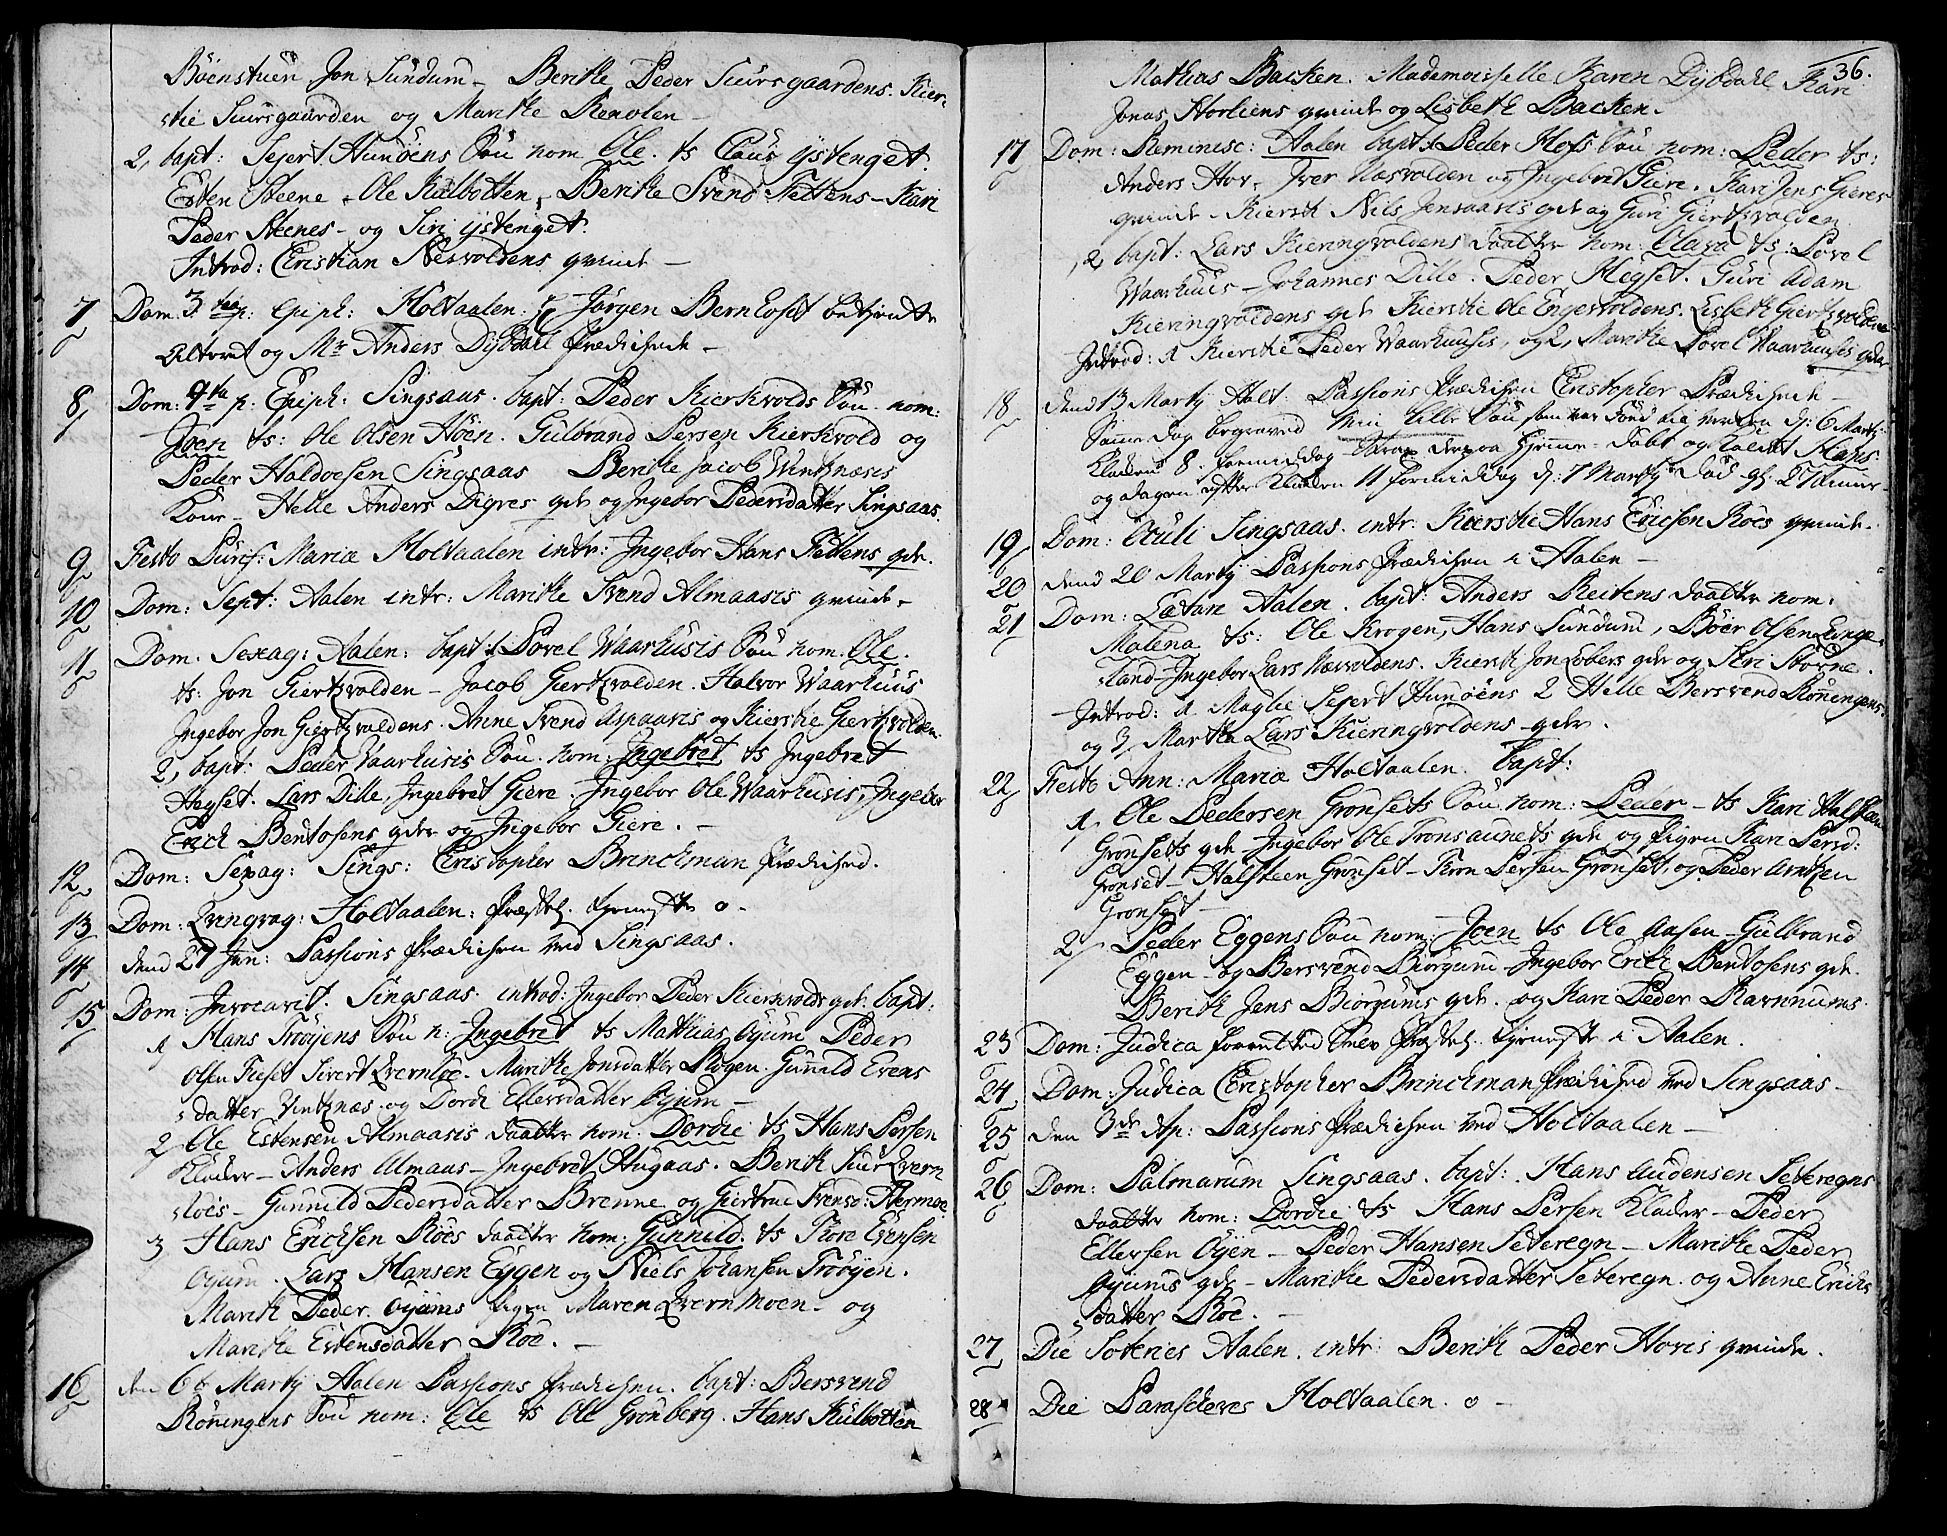 Böenstuen Jon Sundum – Berithe Peder Suursgaardens. Kier-
stie Suursgaarden og Marithe Renolen –
2, bapt: Sejert Hunöens Sön nom Ole. ts Claus ystenget.
Esten Steene, Ole Kulbotten, Berithe Svend Tettens – Kari
Peder Steenes – og Siri ystenget.
Introd: Christian Nesvoldens qvinde –
7 Dom. 3 tia p: Epiph: Holtaalen: Hr Jörgen Bernhoft betjente
Alteret og Mr Anders Dijbdall prædichede –
8, Dom: 4ta p: Epiph: Singsaas. bapt: Peder Kierkvolds Sön. nom:
Joen ts: Ole Olsen Höen. Gulbrand Persen Kierkvold og
Peder Haldoesen Singsaas Berithe Jacob Wintznæsis
Kone – Helle Anders Digres qde og Ingebor Pedersdatter Singsaas.
9 Festo Purif: Mariæ Holtaalen intr: Ingebor Hans Tettens qde.
10 Dom: Sept: Aalen intr: Marithe Svend Almaasis qvinde –
11 Dom: Sexag: Aalen: bapt: 1 Povel Waarhusis Sön nom: Ole.
ts: Jon Giertzvolden – Jacob Giertzvolden. Halvor Waarhuus
Ingebor Jon Giertzvoldens. Anne Svend Aspaasis og Kierstie Giertzvolden.
2, bapt: Peder Waarhusis Sön. nom: Ingebret ts Ingebret
Hegset. Lars Dille, Ingebret Giere. Ingebor Ole Waarhusis, Ingebor
Erich Bentosens qde og Ingebor Giere. –
12 Dom: Sexag: Sings: Christopher Brinchman prædiched.
13 Dom: Qvinqvag: Holtaalen: Præstel. tjeneste o –
14 dend 27 Jan: Passions prædichen ved Singsaas.
15 Dom: Invocavit. Singsaas. introd: Ingebor Peder Kierkvolds qde. bapt:
1, Hans Tröyens Sön n: Ingebret ts Mathias Öyum Peder
Olsen Fieset Sivert Qvernlöe. Marithe Jonsdatter Bogen. Gunild Evens
datter Vintznæs. og Dordi Ellersdatter Öyum –
2, Ole Estensen Almaasis daatter nom: Dordie ts Hans Persen
Kläder – Anders Almaas – Ingebret Hugaas. Berith Siur Qvern
löes – Gunnild Pedersdatter Brenne og Giertrue Svensd: Hermoe
3 Hans Erichsen Röes daatter nom: Gunnild. ts Tore Evensen
Öyum. Lars Hansen Eggen og Niels Johansen Tröyen.
Marith Peder Öyums pigen Maren Qvernmoen – og
Marithe Estensdatter Röe. –
16 den 6t Martij Aalen Passions prædichen. bapt: Bersvend
Röningens Sön nom: Ole ts Ole Grönberg. Hans Kulbotten
36.
Mathias Backen. Mademoiselle Karen Dijbdahl Kari
Jonas Horliens qvinde og Lisbeth Backen.
17 Dom: Reminisc: Aalen bapt: 1 Peder Hofs Sön nom: Peder ts:
Anders Hov, Iver Næsvolden og Ingebret Giere. Kari Jens Gieres
qvinde – Kiersti Nils Jensaasis qde og Guri Giertzvolden
2, bapt: Lars Kieringvoldens daatter nom: Olava ts: Povel
Waarhuus – Johannes Dille. Peder Hegset. Guri Adam
Kieringvoldens qde Kierstie Ole Engesvoldens. Lisbeth Giertzvolden
Introd: 1 Kierstie Peder Waarhuusis, og 2, Marithe Povel Waarhuusis qde
18 dend 13 Martij Holt. Passions prædichen Christopher Prædichede –
Samme dag begraved min lille Sön som var föd til verden d: 6 Martij
Klocken 8. formiddag derpaa hjemme-döbt og kaldet Hans
og dagen efter Klocken 11 formiddag d: 7 Martij död gl: 27 timer –
19 Dom: Oculi Singsaas. intr: Kierstie Hans Erichsen Röes qvinde.
20 dend 20 Martij Passions prædichen i Aalen –
21 Dom: Lætare Aalen. bapt: Anders Reitens daatter nom:
Malena ts: Ole Krogen, Hans Sundum, Böer Olsen Lunge-
land – Ingebor Lars Næsvoldens. Kiersti Jon Lobers qde og Siri Störne.
Introd: 1 Maglie Sejert Hunöens 2 Helle Bersvend Röningens
og 3, Martha Lars Kieringvoldens qde.
22 Festo Ann: Mariæ Holtaalen. bapt:
1, Ole Pedersen Grönsets Sön. nom: Peder – ts Kari Halsteen
Grönsets qde Ingebor Ole Tronsaunets qde og pigen Kari Persd:
Grönset – Halsteen Grönset – Tron Persen Grönset, og Peder Arntzen
Grönset –
2, Peder Eggens Sön nom: Joen ts Ole Aasen – Gulbrand
Eggen – og Bersvend Biörgum – Ingebor Erich Bentosens qde.
Berith Jens Biörgums qde. og Kari Peder Ramnums.
23 Dom: Judica forretted Præstel. tjeneste i Aalen.
24 Dom: Judica Christopher Brinchman prædiched ved Singsaas –
25 den 3de Ap: Passions prædichen ved Holtaalen –
26 Dom: Palmarum Singsaas. bapt: Hans Audensen Seteregns
daatter nom: Dordie ts Hans Persen Kläder – Peder
Ellersen Öyen – Peder Hansen Seteregn – Marithe Peder
Öyums qde – Marithe Pedersdatter Seteregn. og Anne Erichs
datter Röe. –
27 Die Soteries Aalen. intr: Berith Peder Hovis qvinde.
28 Die Parascheves Holtaalen. o –